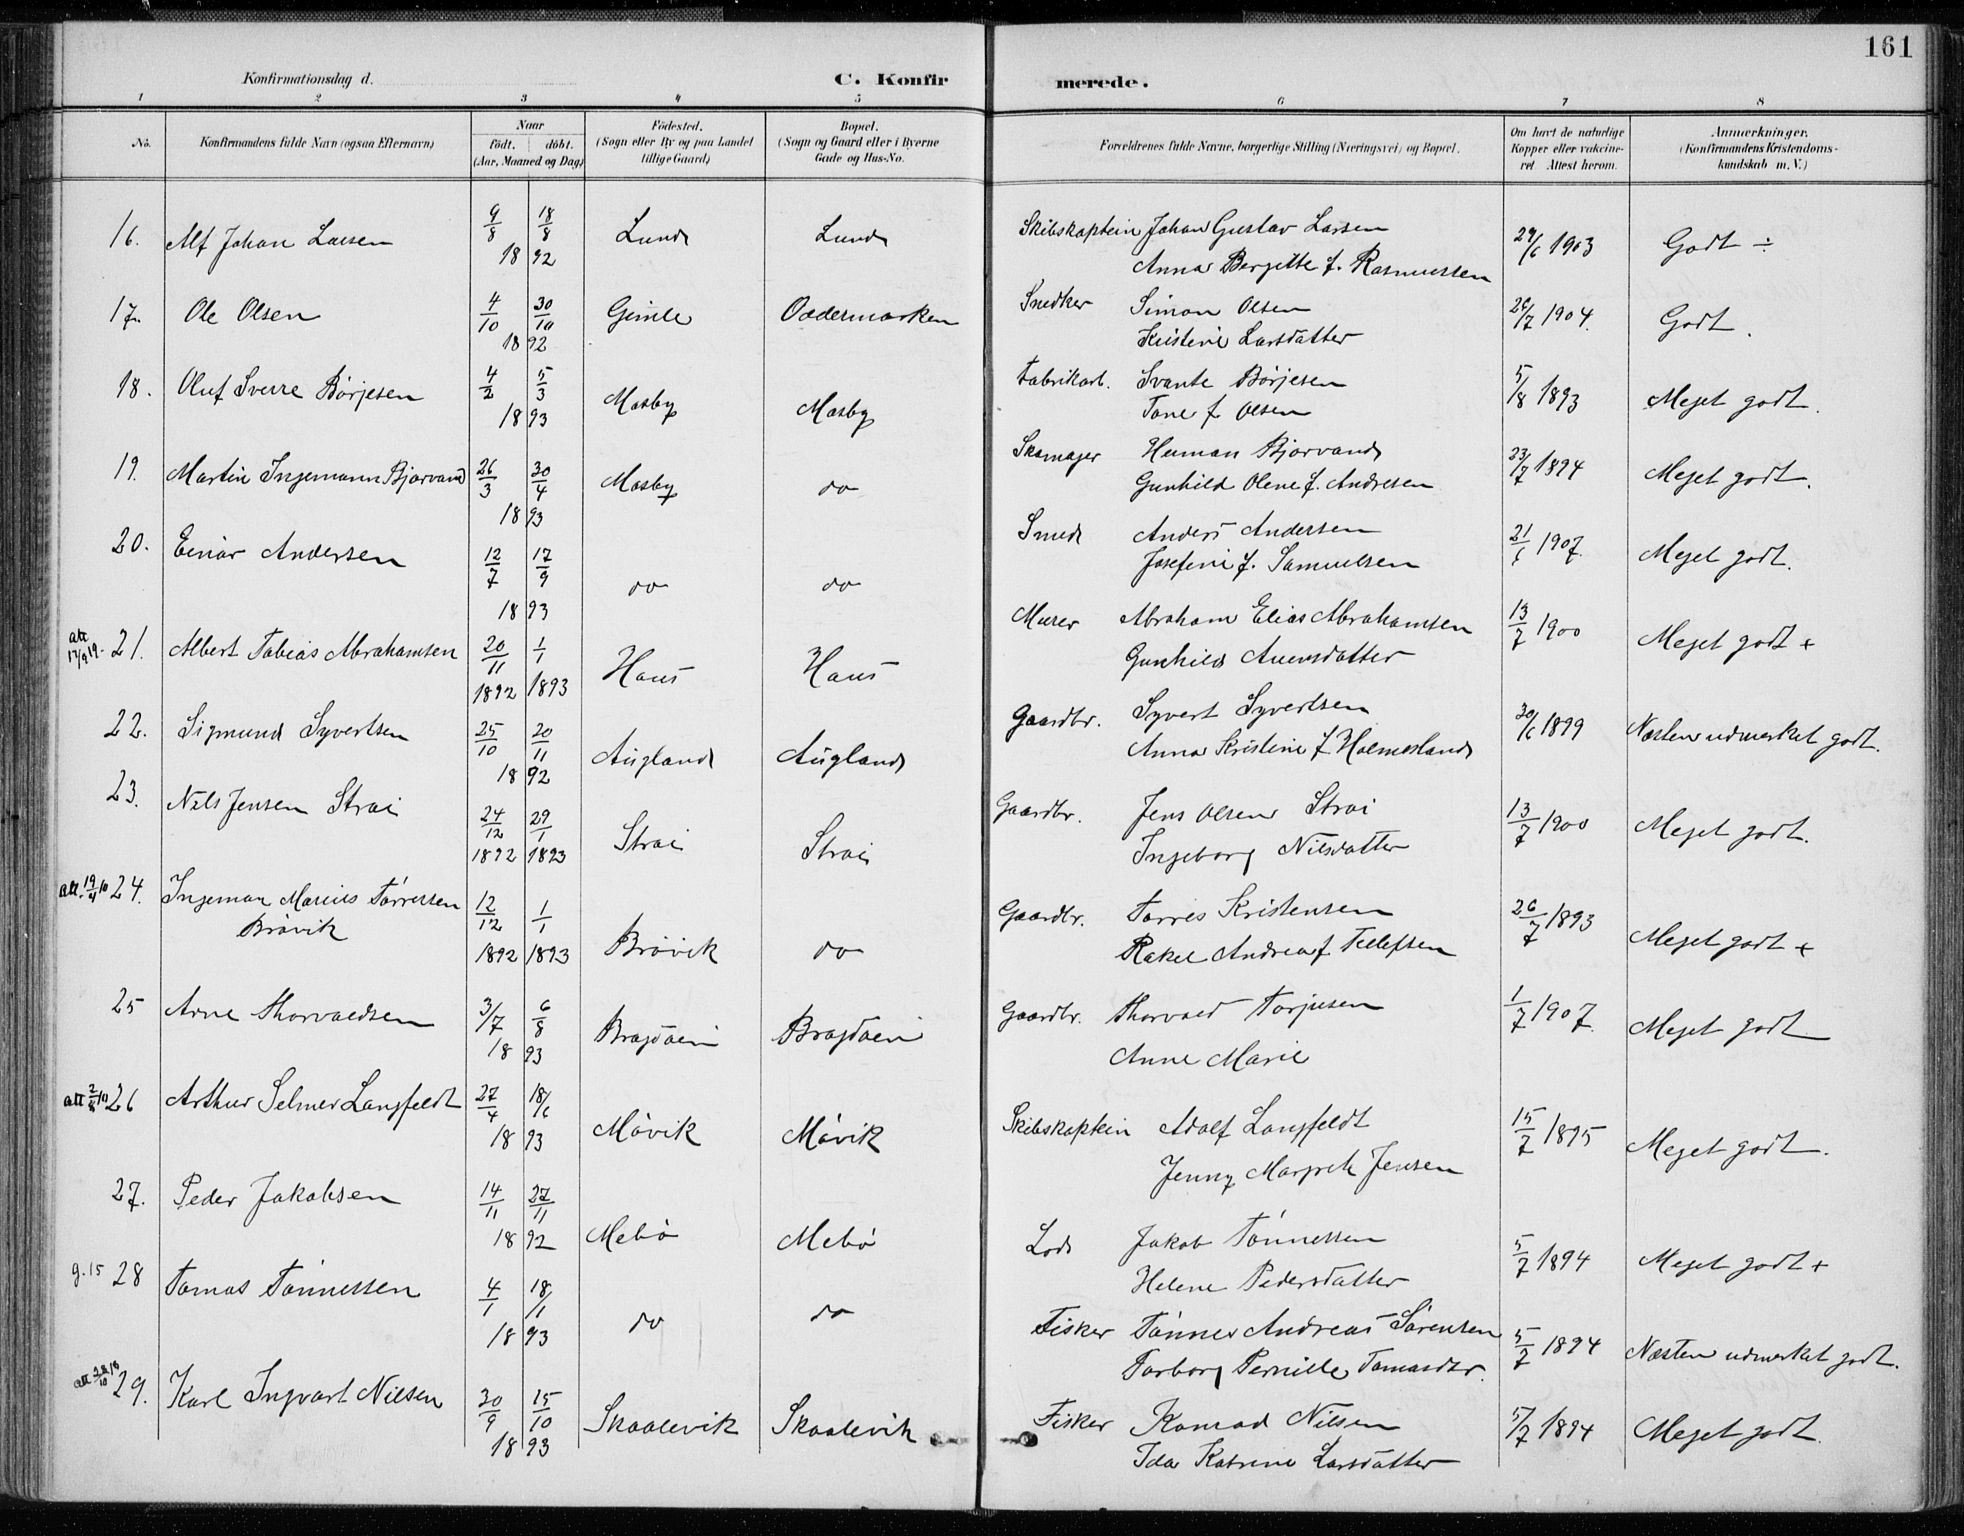 161
Konfirmationsdag d.
C. Konfir merede.
1 2 3 4 5 6 7 8
No. Konfirmandens fulde Navn (ogsaa Efternavn) Naar født. døbt. (Aar, Maaned og Dag) Fødested. (Sogn eller By og paa Landet tillige Gaard) Bopæl. (Sogn og Gaard eller i Byerne Gade og Hus-No. Forældrenes fulde Navne, borgerlige Stilling (Næringsvei) og Bopæl. Om havt de naturlige Kopper eller vakcineret Attest herom. Anmærkninger. (Konfirmandens Kristendomskundskab m. V.)
16. Alf Johan Larsen 9/8 18/8 1892 Lund Lund Skibskaptein Johan Gustav Larsen 29/6 1903 Godt ÷
Anna Bergitte f. Rasmussen
17. Ole Olsen 4/10 30/10 1892 Gimle Oddermarken Snedker Simon Olsen 26/7 1904. Godt.
Kristine Larsdatter
18. Oluf Sverre Børjesen 4/2 5/3 1893 Mosby Mosby Fabrikarb. Svante Børjesen 5/8 1893 Meget godt.
Tone f. Olsen
19. Martin Ingemann Bjorvand 26/3 30/4 1893 Mosby do Skomager Herman Bjorvand 23/7 1894 Meget godt.
Gunhild Olene f. Andresen
20. Einar Andersen 12/7 17/9 1893 do do Smed Anders Andersen 21/6 1907. Meget godt.
Josefine f. Samuelsen
att 17/9 19. 21. Albert Tobias Abrahamsen 20/11 1892 1/1 1893 Haus Haus Murer Abraham Elias Abrahamsen 13/7 1900 Meget godt +
Gunhild Aanensdatter
22. Sigmund Syvertsen 25/10 20/11 1892 Augland Augland Gaardbr. Syvert Syvertsen 30/6 1899 Næsten udmerket godt.
Anna Kristine f Holmesland
23. Nils Jensen Strai 24/12 1892 29/1 1893 Strai Strai Gaardbr. Jens Olsen Strai 13/7 1900 Meget godt.
Ingeborg Nilsdatter
att. 19/4 10 24. Ingeman Marius Tørresen Brøvik 12/12 1892 1/1 1893 Brøvik do Gaardbr. Torres Kristensen 26/7 1893 Meget godt +
Rakel Andrea f Tellefsen
25 Arne Thorvaldsen 3/7 6/8 1893 Bragdøen Bragdøen Gaardbr. Thorvald Torjusen 1/7 1907. Meget godt
Anne Marie
att 2/8 10 26 Arthur Selmer Langfeldt 27/4 18/6 1893 Møvik Møvik Skibskaptein Adolf Langfeldt 15/7 1895 Meget godt.
Jenny Margrete Jensen
27. Peder Jakobsen 14/11 27/11 1892 Mebø Mebø Lods Jakob Tønnessen 5/7 1894 Meget godt +
Helene Pedersdatter
g. 15 28 Tomas Tønnessen 4/1 18/1 1893 do do Fisker Tønnes Andreas Sørensen 5/7 1894 Næsten udmerket godt.
Torborg Pernille Tomasdtr.
att 28/10 18 29. Karl Ingvart Nilsen 30/9 15/10 1893 Skaalevik Skaalevik Fisker Konrad Nilsen 5/7 1894 Meget godt.
Ida Katrine Larsdatter